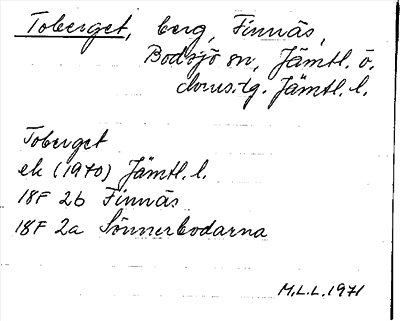 Toberget, berg, Finnäs,
Bodsjö sn, Jämtl. ö.
doms.lg. Jämtl. l.
Toberget
ek (1970) Jämtl. l.
18F 2b Finnäs
18F 2a Sönnerbodarna
M.L.L. 1971